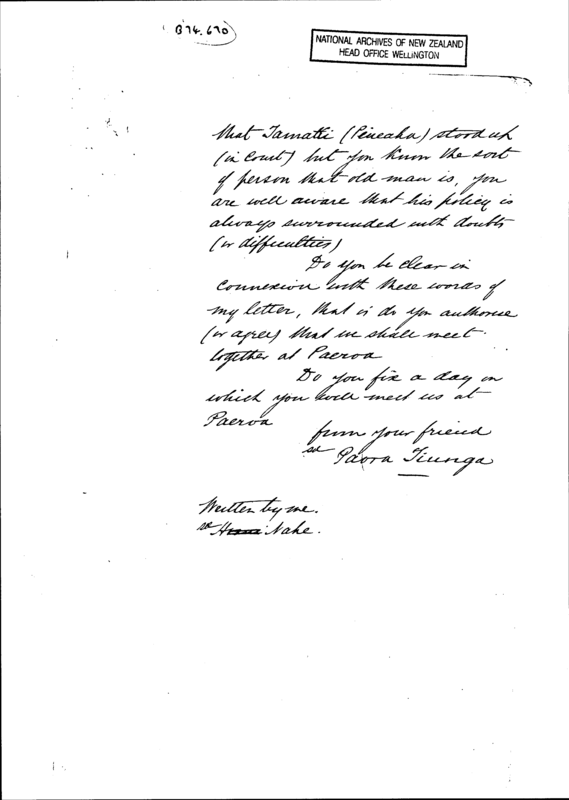 B74.670
NATIONAL ARCHIVES OF NEW ZEALAND
HEAD OFFICE WELLINGTON
that Tamati (Pineaha) stood up
(in Court) but you know the sort
of person that old man is, you
are well aware that his policy is
always surrounded with doubts
(or difficulties)
Do you be clear in
connexion with these words of
my letter, that is do you authorise
(or agree) that we shall meet
together at Paeroa
Do you fix a day on
which you will meet us at
Paeroa
from your friend
sd Paora Tiunga
Written by me.
sd Nahe.